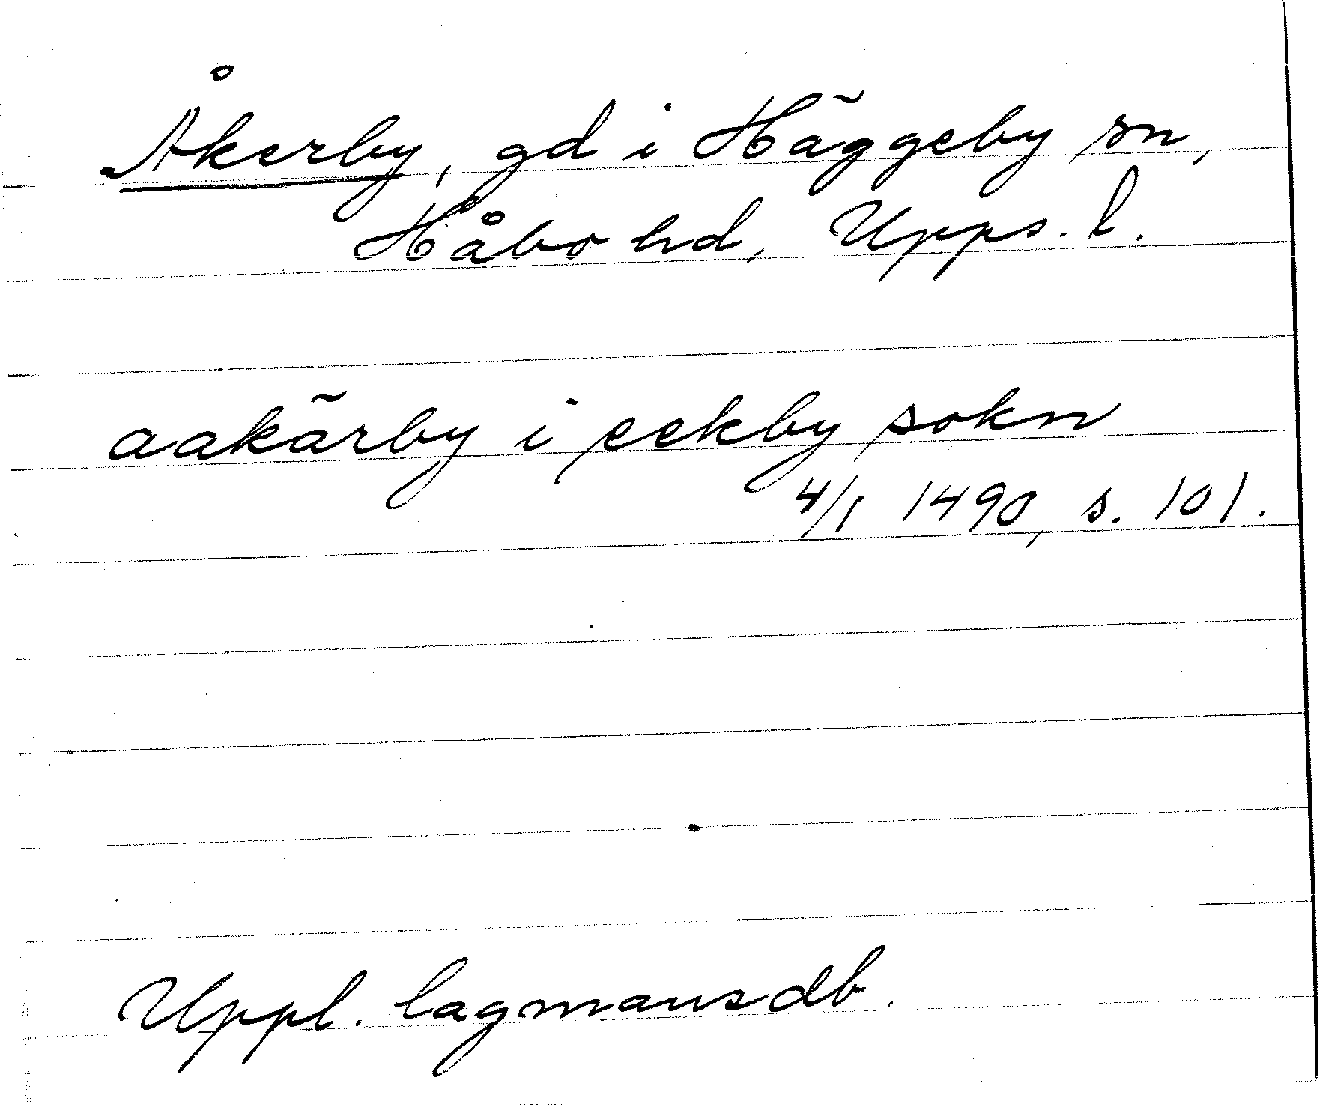 Åkerby, gd i Häggeby sn,
Håbo hd, Upps. l.
aakärby i eekby sokn
4/1 1490, s. 101.
Uppl. lagmansdb.